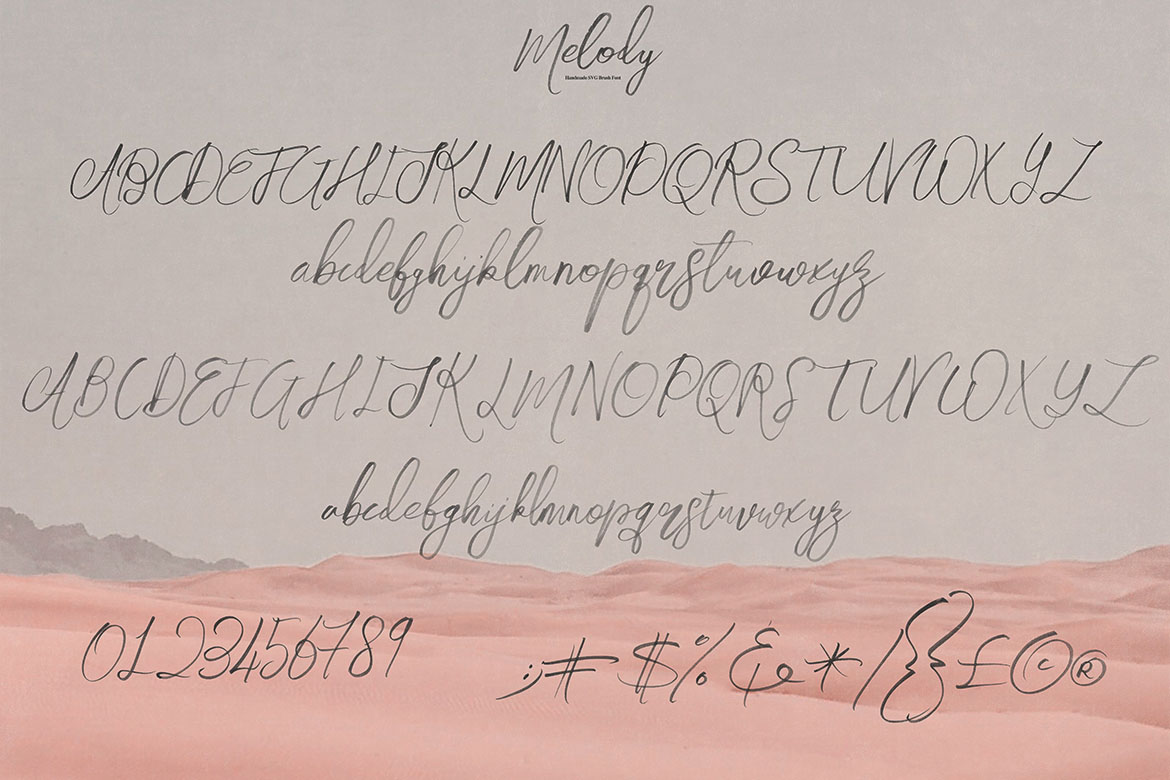 Melody
Handmade SVG Brush Font
ABCDEFGHIJKLMNOPQRSTUVWXYZ
abcdefghijklmnopqrstuvwxyz
ABCDEFGHIJKLMNOPQRSTUVWXYZ
abcdefghijklmnopqrstuvwxyz
0123456789 :;#$%&*/{}£©®